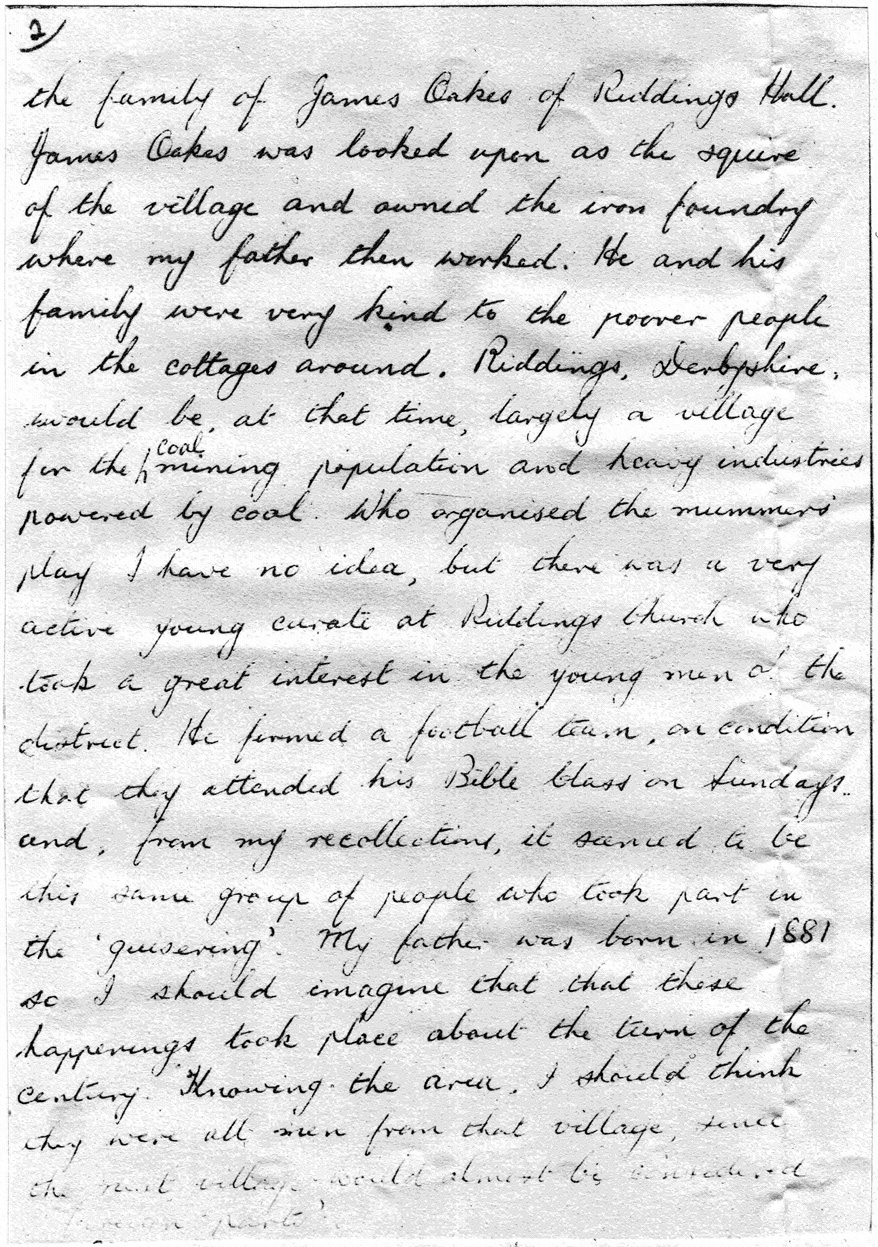 2
the family of James Oakes of Riddings Hall.
James Oakes was looked upon as the squire
of the village and owned the iron foundry
where my father then worked. He and his
family were very kind to the poorer people
in the cottages around. Riddings, Derbyshire,
would be, at that time, largely a village
for the coal mining population and heavy industries
powered by coal. Who organised the mummers'
play I have no idea, but there was a very
active young curate at Riddings Church who
took a great interest in the young men of the
district. He formed a football team, on condition
that they attended his Bible Class on Sundays..
and, from my recollections, it seemed to be
this same group of people who took part in
the 'guisering'. My father was born in 1881
so I should imagine that that these
happenings took place about the turn of the
century. Knowing the area, I should think
they were all men from that village, since
the next village would almost be considered
'foreign parts'.